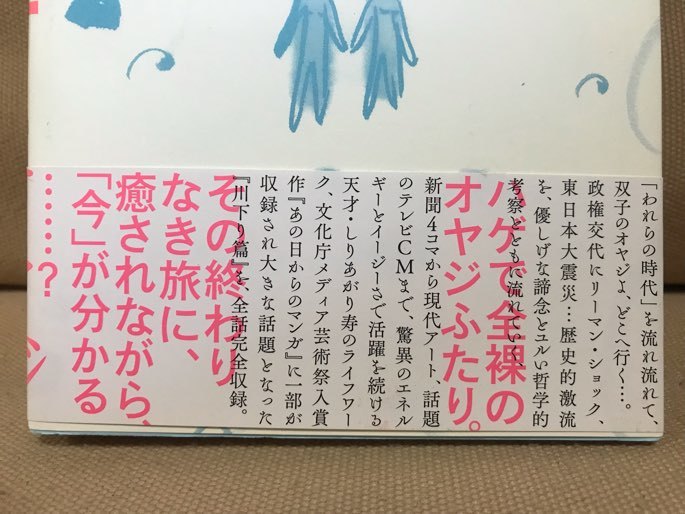 「われらの時代」を流れ流れて、
双子のオヤジよ、どこへ行く…。
政権交代にリーマン・ショック、
東日本大震災…歴史的激流
を、優しげな諦念とユルい哲学的
考察とともに流れていく、
ハゲで全裸の
オヤジふたり。
新聞4コマから現代アート、話題
のテレビCMまで、驚異のエネル
ギーとイージーさで活躍を続ける
天才・しりあがり寿のライフワー
ク、文化庁メディア芸術祭入賞
作『あの日からのマンガ』に一部が
収録され大きな話題となった
『川下り篇』を、全話完全収録。
その終わり
なき旅に、
癒されながら、
「今」が分かる
………?